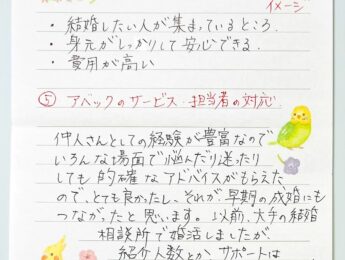 イメージ
・結婚したい人が集まっているところ.
・身元がしっかりして安心できる.
・費用が高い
⑤ アベックのサービス・担当者の対応.
仲人さんとしての経験が豊富なので
いろんな場面で悩んだり迷ったり
しても的確なアドバイスがもらえた
ので、とても良かたし、それが、早期の成婚にも
つながったと思います。以前、大手の結婚
相談所で婚活しましたが、
紹介人数とか、サポートは